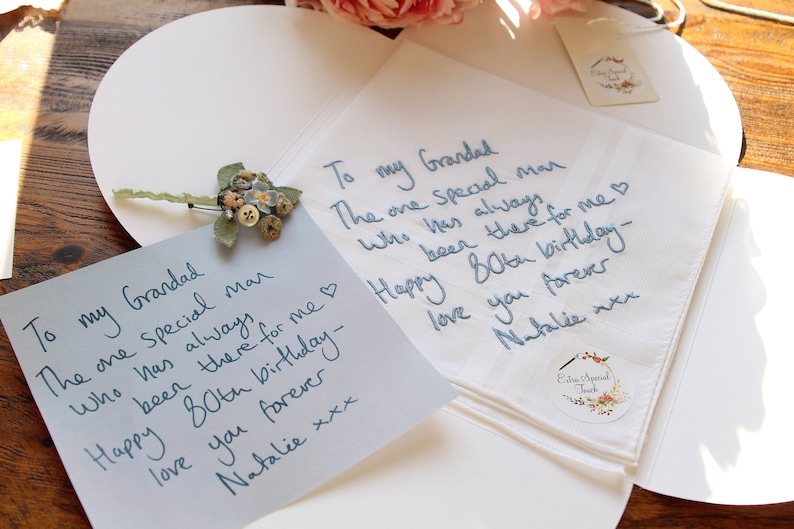 Extra Special
Touch
To my Grandad
The one special man
who has always
been there for me ♡
Happy 80th birthday-
love you forever
Natalie xxx
Extra Special
Touch
To my Grandad
The one special man
who has always
been there for me ♡
Happy 80th birthday-
love you forever
Natalie xxx